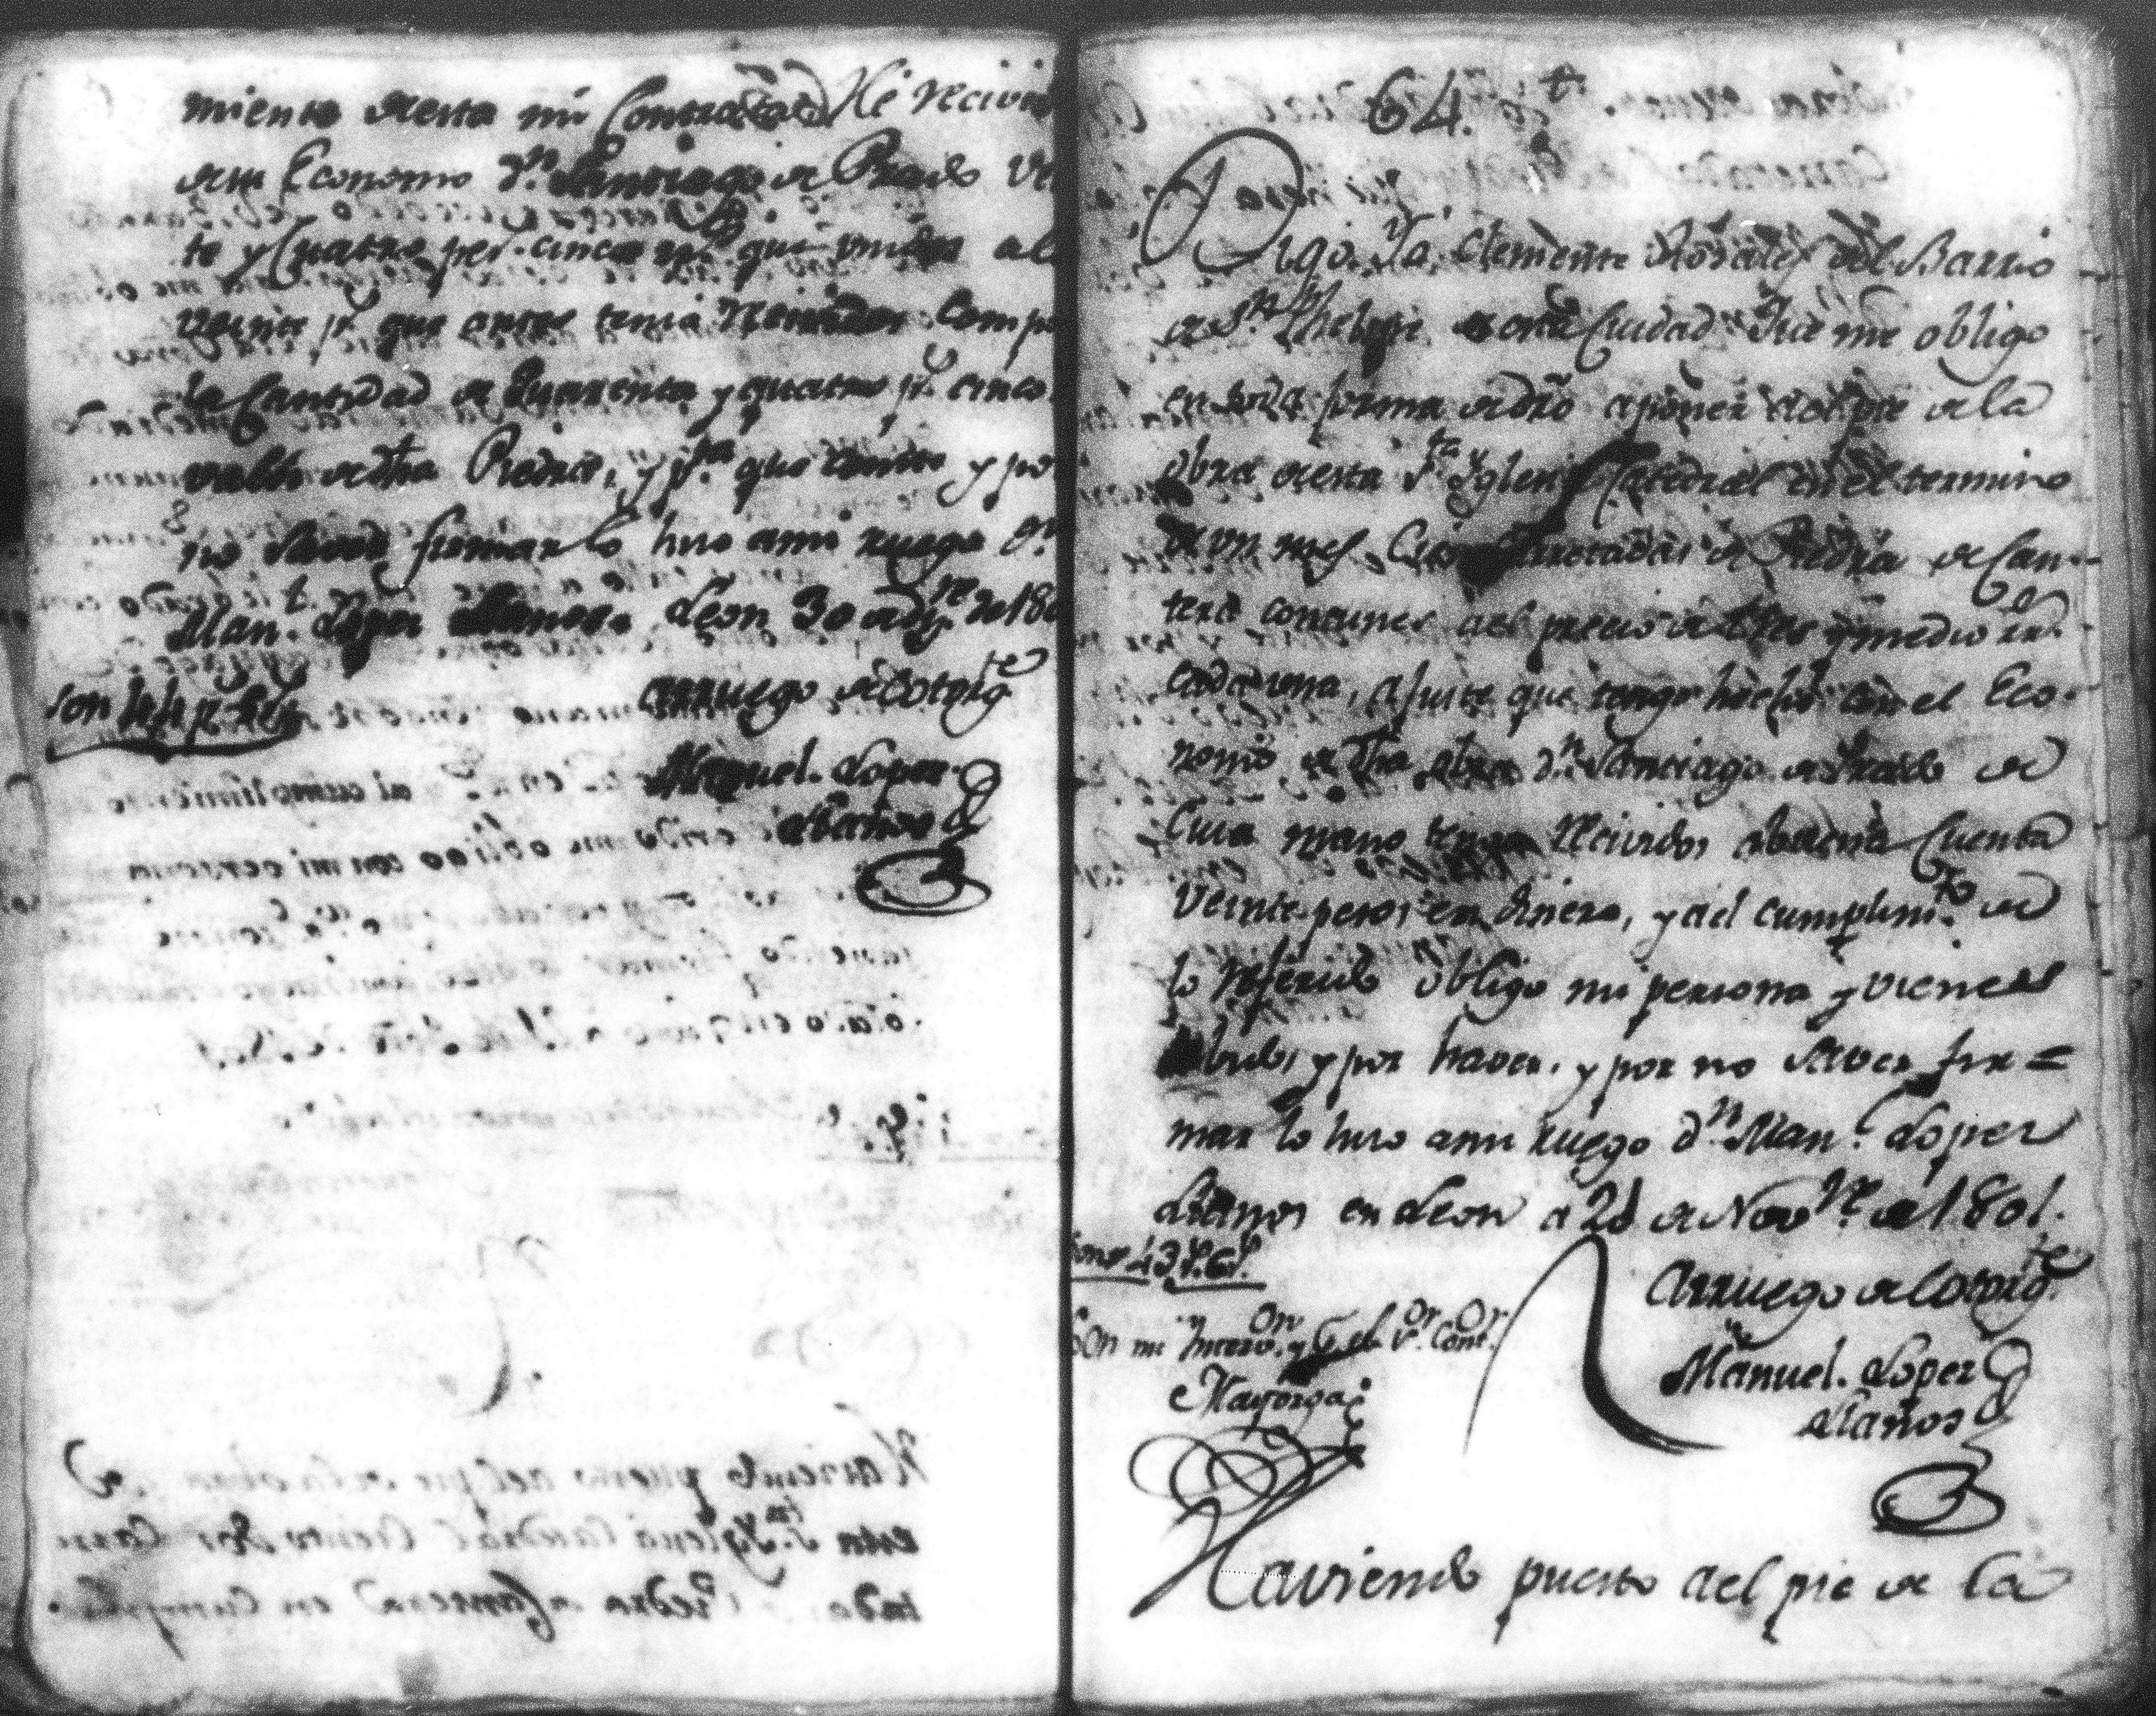 miento de esta mi Contrata. Hé recivi
de su Economo Dn. Santiago de Prado Ve
te y Quatro ps. cinco rs. que unidos al
veinte ps. que antes tenia recividos Comp
la Cantidad de Quarenta y quatro ps. cinco
valor de dha Piedra, y pa. que conste y po
no saver firmar lo hiso a mi ruego Dn.
Manl. Lopez Llanos. Leon 30 de
Son 44 ps. 5 rs.
Arruego de lotorgte
Manuel. Lopez
Llanos
64.
Digo Yo Clemente Rosales del Barrio
de Sn. Phelipe de esta Ciudad Que me obligo
en toda forma de dro a poner al pie de la
obra de esta Sta. Yglesia Catedral en el termino
de un mes Cien Carretadas de Piedra de Can-
tera comunes al precio de tres y medio rs.
cada una, ajuste que tengo hecho con el Eco-
nomo de dha obra Dn. Santiago de Prado de
Cuia mano tengo recividos a buena Cuenta
Veinte pesos en dinero, y al cumplimto. de
lo referido obligo mi persona y vienes
havidos y por haver, y por no saver fir=
mar lo hiso a mi ruego Dn. Manl. Lopez
Llanos en Leon a 28 de Novre. de 1801.
Son 43 ps. 6 rs.
Arruego de lotorgte.
Con mi Intervon. y el Sor. Contor.
Mayorga
Manuel. Lopez
Llanos
Haviendo puesto al pie de la